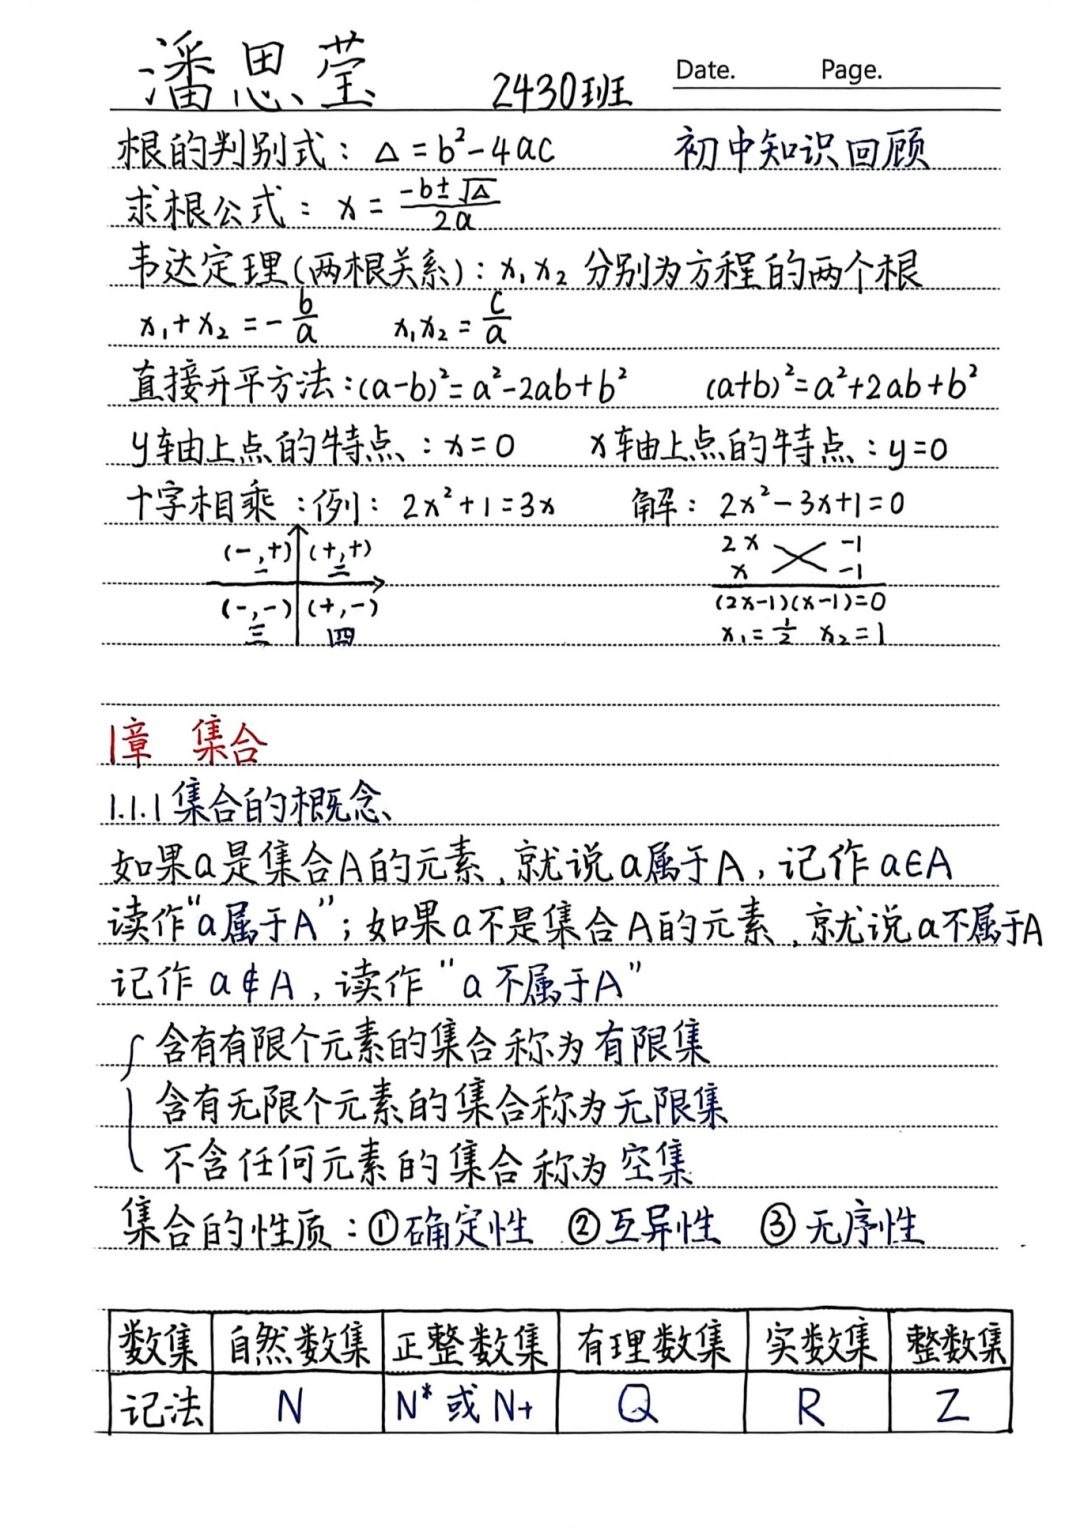 潘思莹 2430班 Date. Page.
根的判别式：△=b²-4ac 初中知识回顾
求根公式：x=(-b±√△)/2a
韦达定理(两根关系)：x₁x₂ 分别为方程的两个根
x₁+x₂=-b/a x₁x₂=c/a
直接开平方法：(a-b)²=a²-2ab+b² (a+b)²=a²+2ab+b²
y轴由上点的特点：x=0 x轴由上点的特点：y=0
十字相乘：例：2x²+1=3x 解：2x²-3x+1=0
(-,+) (+,+) 2x -1
一 二 x -1
(-,-) (+,-) (2x-1)(x-1)=0
三 四 x₁=1/2 x₂=1
1章 集合
1.1.1集合的概念
如果a是集合A的元素,就说a属于A,记作a∈A
读作"a属于A"；如果a不是集合A的元素,就说a不属于A
记作a∉A,读作"a不属于A"
{含有有限个元素的集合称为有限集
含有无限个元素的集合称为无限集
不含任何元素的集合称为空集
集合的性质：①确定性 ②互异性 ③无序性
数集 自然数集 正整数集 有理数集 实数集 整数集
记法 N N*或N+ Q R Z